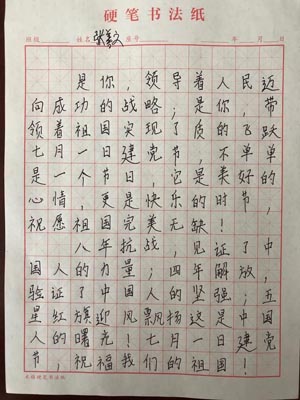 硬笔书法纸
班级 姓名 张美文 座号 年 月 日
是你，领导着人民迈
向成功的战略；是你，带
领着祖国实现了质的飞跃
七月一日建党节，不单单
是一个节日，它是美好的
心情，更是快乐的时节，
祝愿祖国完美无缺！
八年抗战，见证了中
国人的力量；四年解放，
验证了中国人的坚强；五
星红旗迎风飘扬这是中国
人的曙光！七月一日建党
节，祝福我们的祖国！
硬笔书法纸